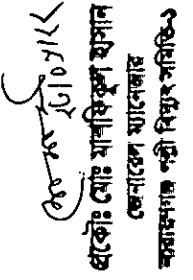 প্রকৌঃ মোঃ মাশফিকুল হাসান
জেনারেল ম্যানেজার
নারায়ণগঞ্জ পল্লী বিদ্যুৎ সমিতি-১